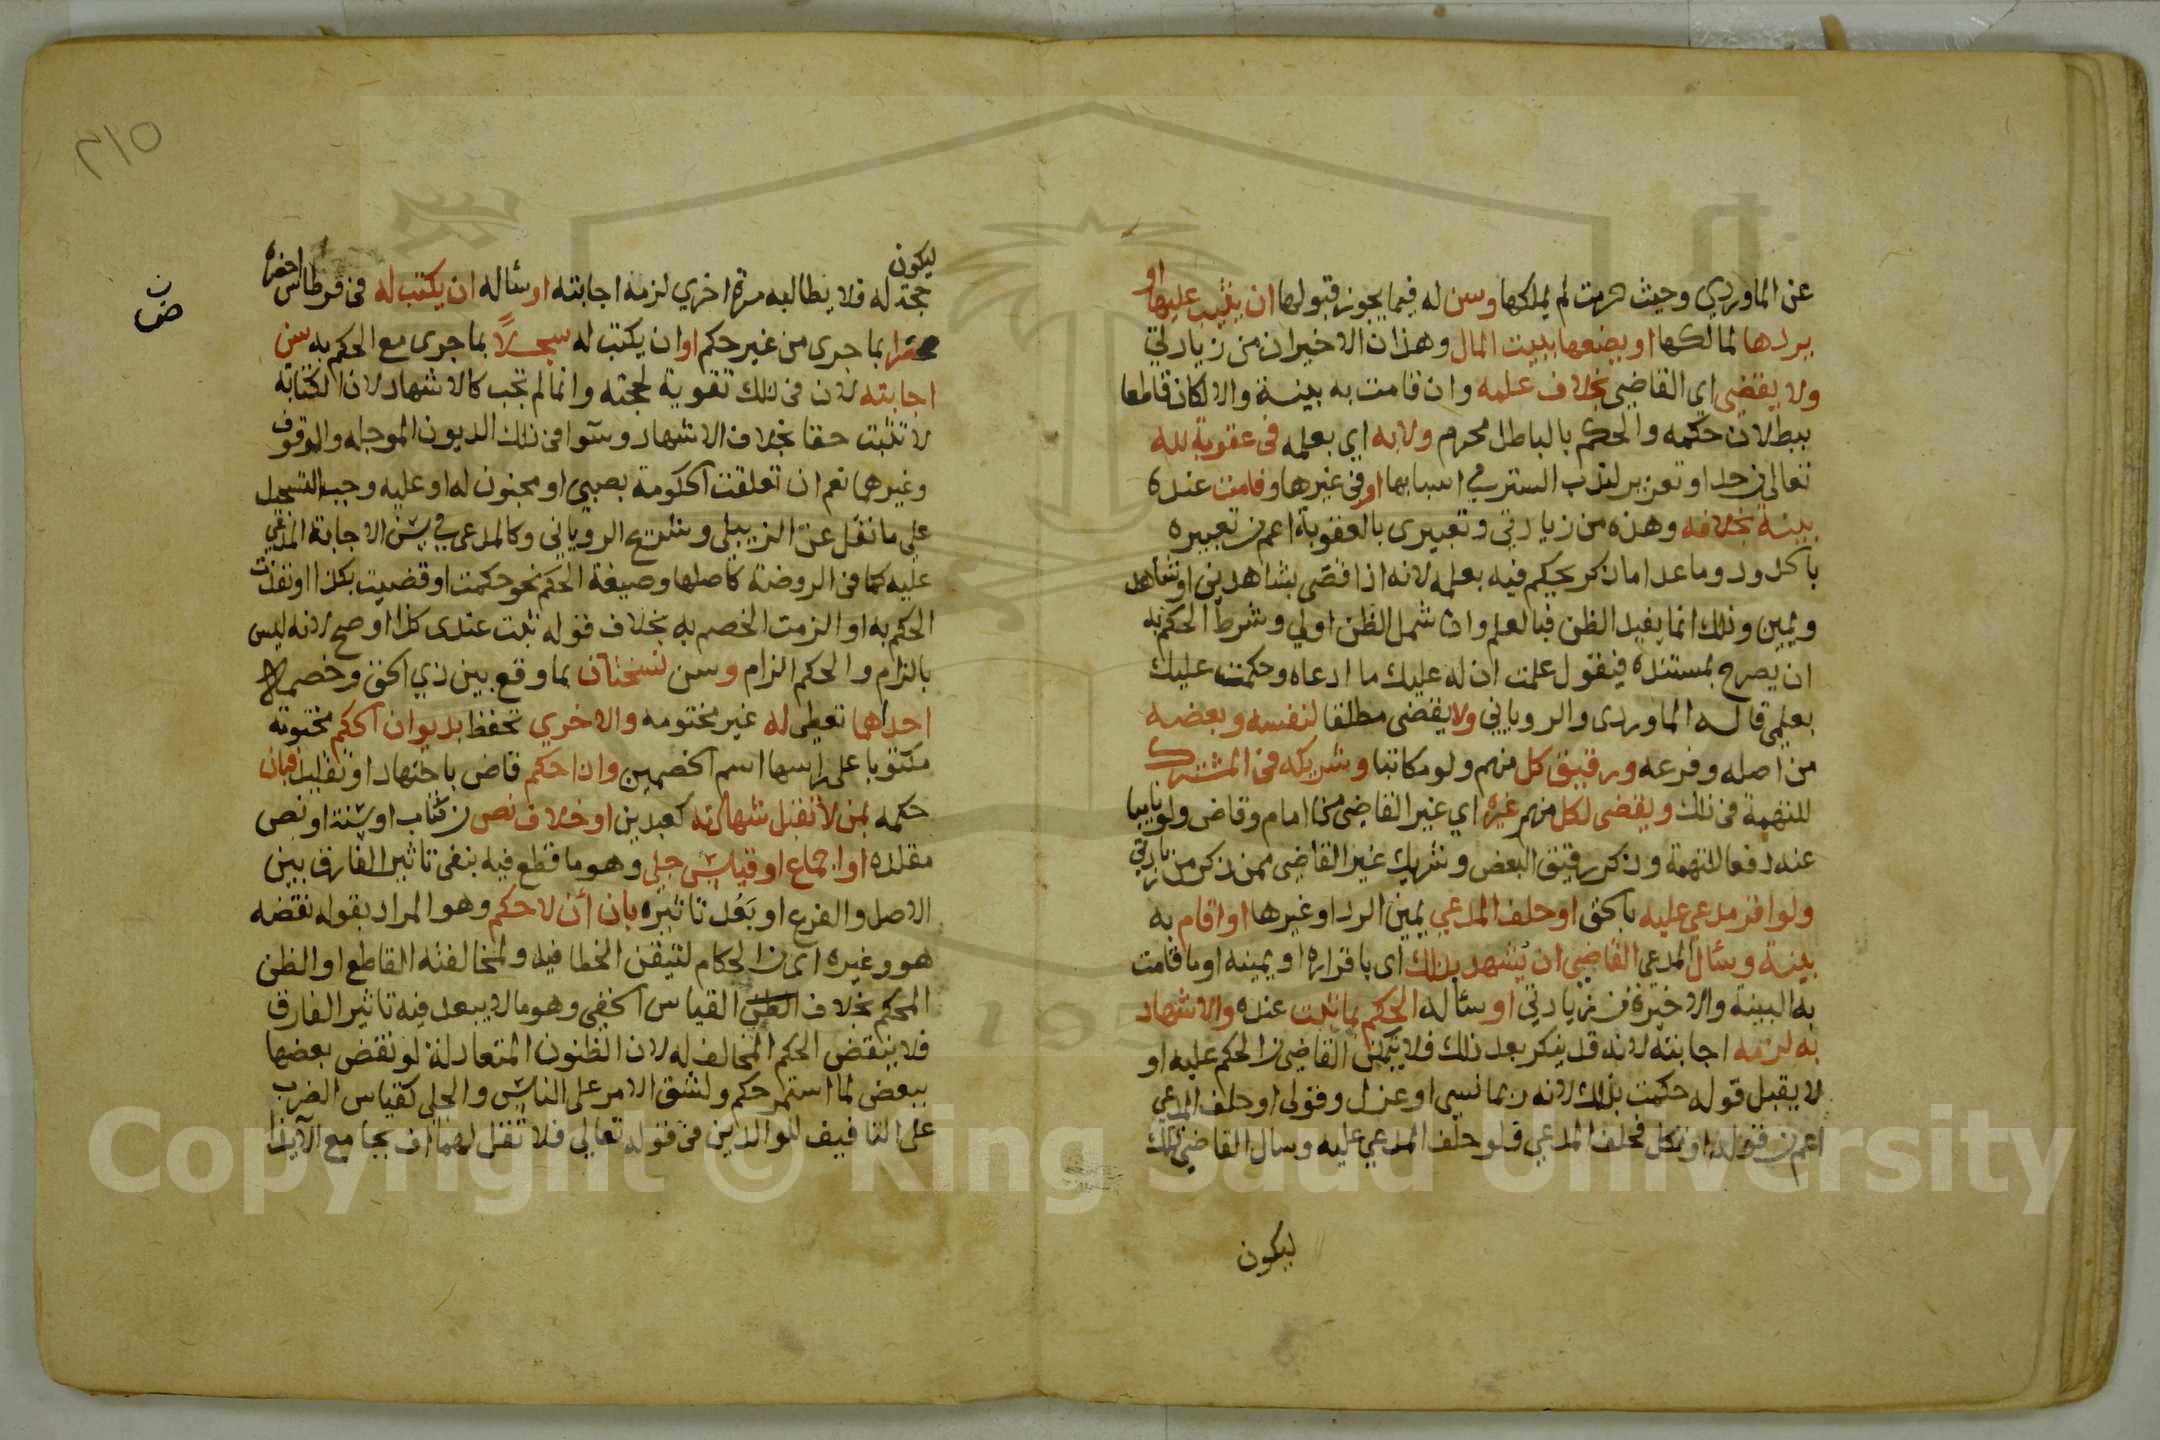 عن الماوردي وحيث حرمت لم يملكها وسن له فيما يجوز قبولها ان يثيب عليها او
يردها لمالكها او يضعها ببيت المال وهذان الاخيران من زيادتي
ولا يقضي اي القاضي بخلاف علمه وان قامت به بينة والا لكان قاطعا
ببطلان حكمه والحكم بالباطل محرم ولا به اي بعلمه في عقوبة لله
تعالى من حد او تعزير لندب الستر في اسبابها او في غيرها وقامت عنده
بينة بخلافه وهذه من زيادتي وتعبيري بالعقوبة اعم من تعبيره
بالحدود وما عدا ما ذكر يحكم فيه بعلمه لانه اذا قضى بشاهدين او شاهد
ويمين وذلك انما يفيد الظن فبالعلم وان شمل الظن اولي وشرط الحكم به
ان يصرح بمستنده فيقول علمت ان له عليك ما ادعاه وحكمت عليك
بعلمي قاله الماوردى والروياني ولا يقضي مطلقا لنفسه وبعضه
من اصله وفرعه ورقيق كل منهم ولو مكاتبا وشريكه في المشترك
للتهمة في ذلك ويقضى لكل منهم غيره اي غير القاضي من امام وقاض ولو نايبا
عنه دفعا للتهمة وذكر رقيق البعض وشريك غير القاضي ممن ذكر من زيادتي
ولو اقر مدعي عليه بالحق او حلف المدعي يمين الرد او غيرها او اقام به
بينة وسال المدعي القاضي ان يشهد بذلك اى باقراره او يمينه او ما قامت
به البينة والاخيرة من زيادتي او ساله الحكم بما ثبت عنده والاشهاد
به لزمه اجابته لانه قد ينكر بعد ذلك فلا يتمكن القاضي من الحكم عليه او
لا يقبل قوله حكمت بذلك لانه ربما نسي او عزل وقولي او حلف المدعي
اعم من قوله او نكل فحلف المدعي ولو حلف المدعي عليه وسال القاضي ذلك
ليكون
٢١٥
ليكون
حجة له فلا يطالبه مرة اخري لزمه اجابته او ساله ان يكتب له في قرطاس احضره
محضرا بما جرى من غير حكم او ان يكتب له سجلا بما جرى مع الحكم به سن
اجابته لان في ذلك تقوية لحجته وانما لم تجب كالاشهاد لان الكتابة
لا تثبت حقا بخلاف الاشهاد وسوا في ذلك الديون الموجله والوقوف
وغيرهما نعم ان تعلقت الحكومة بصبي او مجنون له او عليه وجب التسجيل
على ما نقل عن الزبيلي وشريح الروياني وكالمدعي في سن الاجابة المدعي
عليه كما في الروضة كاصلها وصيغة الحكم نحو حكمت او قضيت بكذا او نفذت
الحكم به او الزمت الخصم به بخلاف قوله ثبت عندى كذا او صح لانه ليس
بالزام والحكم الزام وسن نسختان بما وقع بين ذي الحق وخصمه
احداهما تعطى له غير مختومه والاخري تحفظ بديوان الحكم مختومة
مكتوبا على راسها اسم الخصمين وان احكم قاض باجتهاد او تقليد فبان
حكمه بمن لا تقبل شهادته كعبدين او خلاف نص من كتاب او سنة او نص
مقلده او اجماع او قياس جلي وهو ما قطع فيه بنفي تاثير الفارق بين
الاصل والفرع او بعد تاثيره بان أن لا حكم وهو المراد بقوله نقضه
هو وغيره اى من الحكام لتيقن الخطا فيه ولمخالفته القاطع او الظن
المحكم بخلاف الظن القياس الخفي وهو ما لا يبعد فيه تاثير الفارق
فلا ينقض الحكم المخالف له لان الظنون المتعادلة لو نقض بعضها
ببعض لما استمر حكم ولشق الامر على الناس والجلي كقياس الضرب
على التافيف للوالدين في قوله تعالي فلا تقل لهما اف بجامع الايذا
Copyright © King Saud University